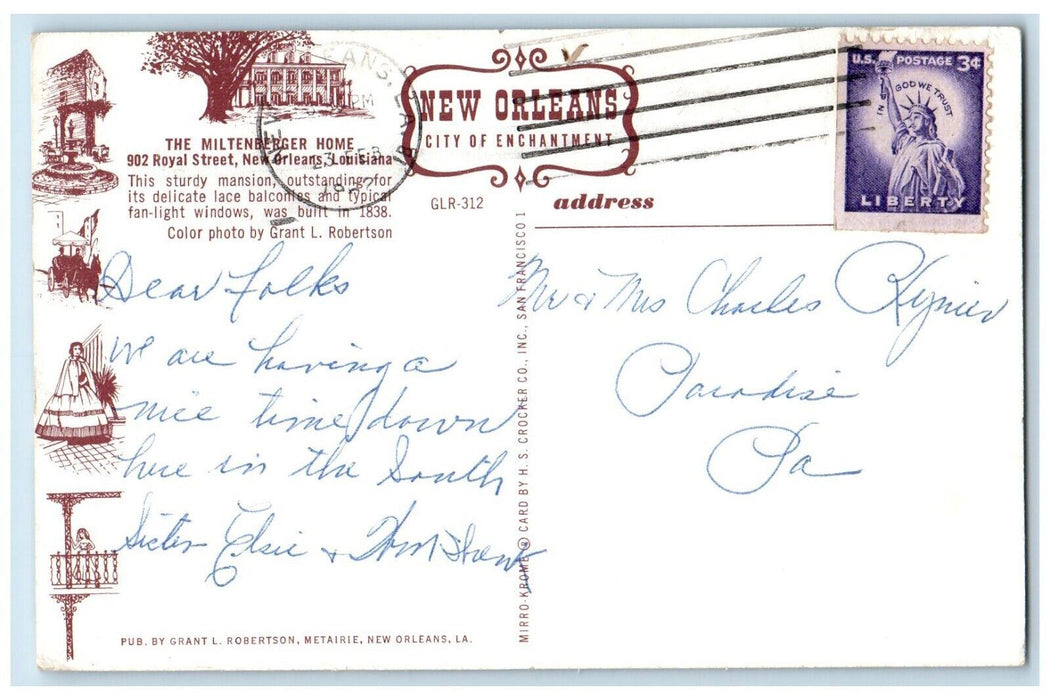 THE MILTENBERGER HOME
902 Royal Street, New Orleans, Louisiana
This sturdy mansion, outstanding for
its delicate lace balconies and typical
fan-light windows, was built in 1838.
Color photo by Grant L. Robertson
PM
FEB
1957
NEW ORLEANS
CITY OF ENCHANTMENT
GLR-312
U.S. POSTAGE 3¢
IN GOD WE TRUST
LIBERTY
address
Dear Folks
We are having a
nice time down
here in the South
Sister Elsie &
MIRRO-KROME ® CARD BY H. S. CROCKER CO., INC., SAN FRANCISCO 1
Mr & Mrs Charles
Paradise
Pa
PUB. BY GRANT L. ROBERTSON, METAIRIE, NEW ORLEANS, LA.